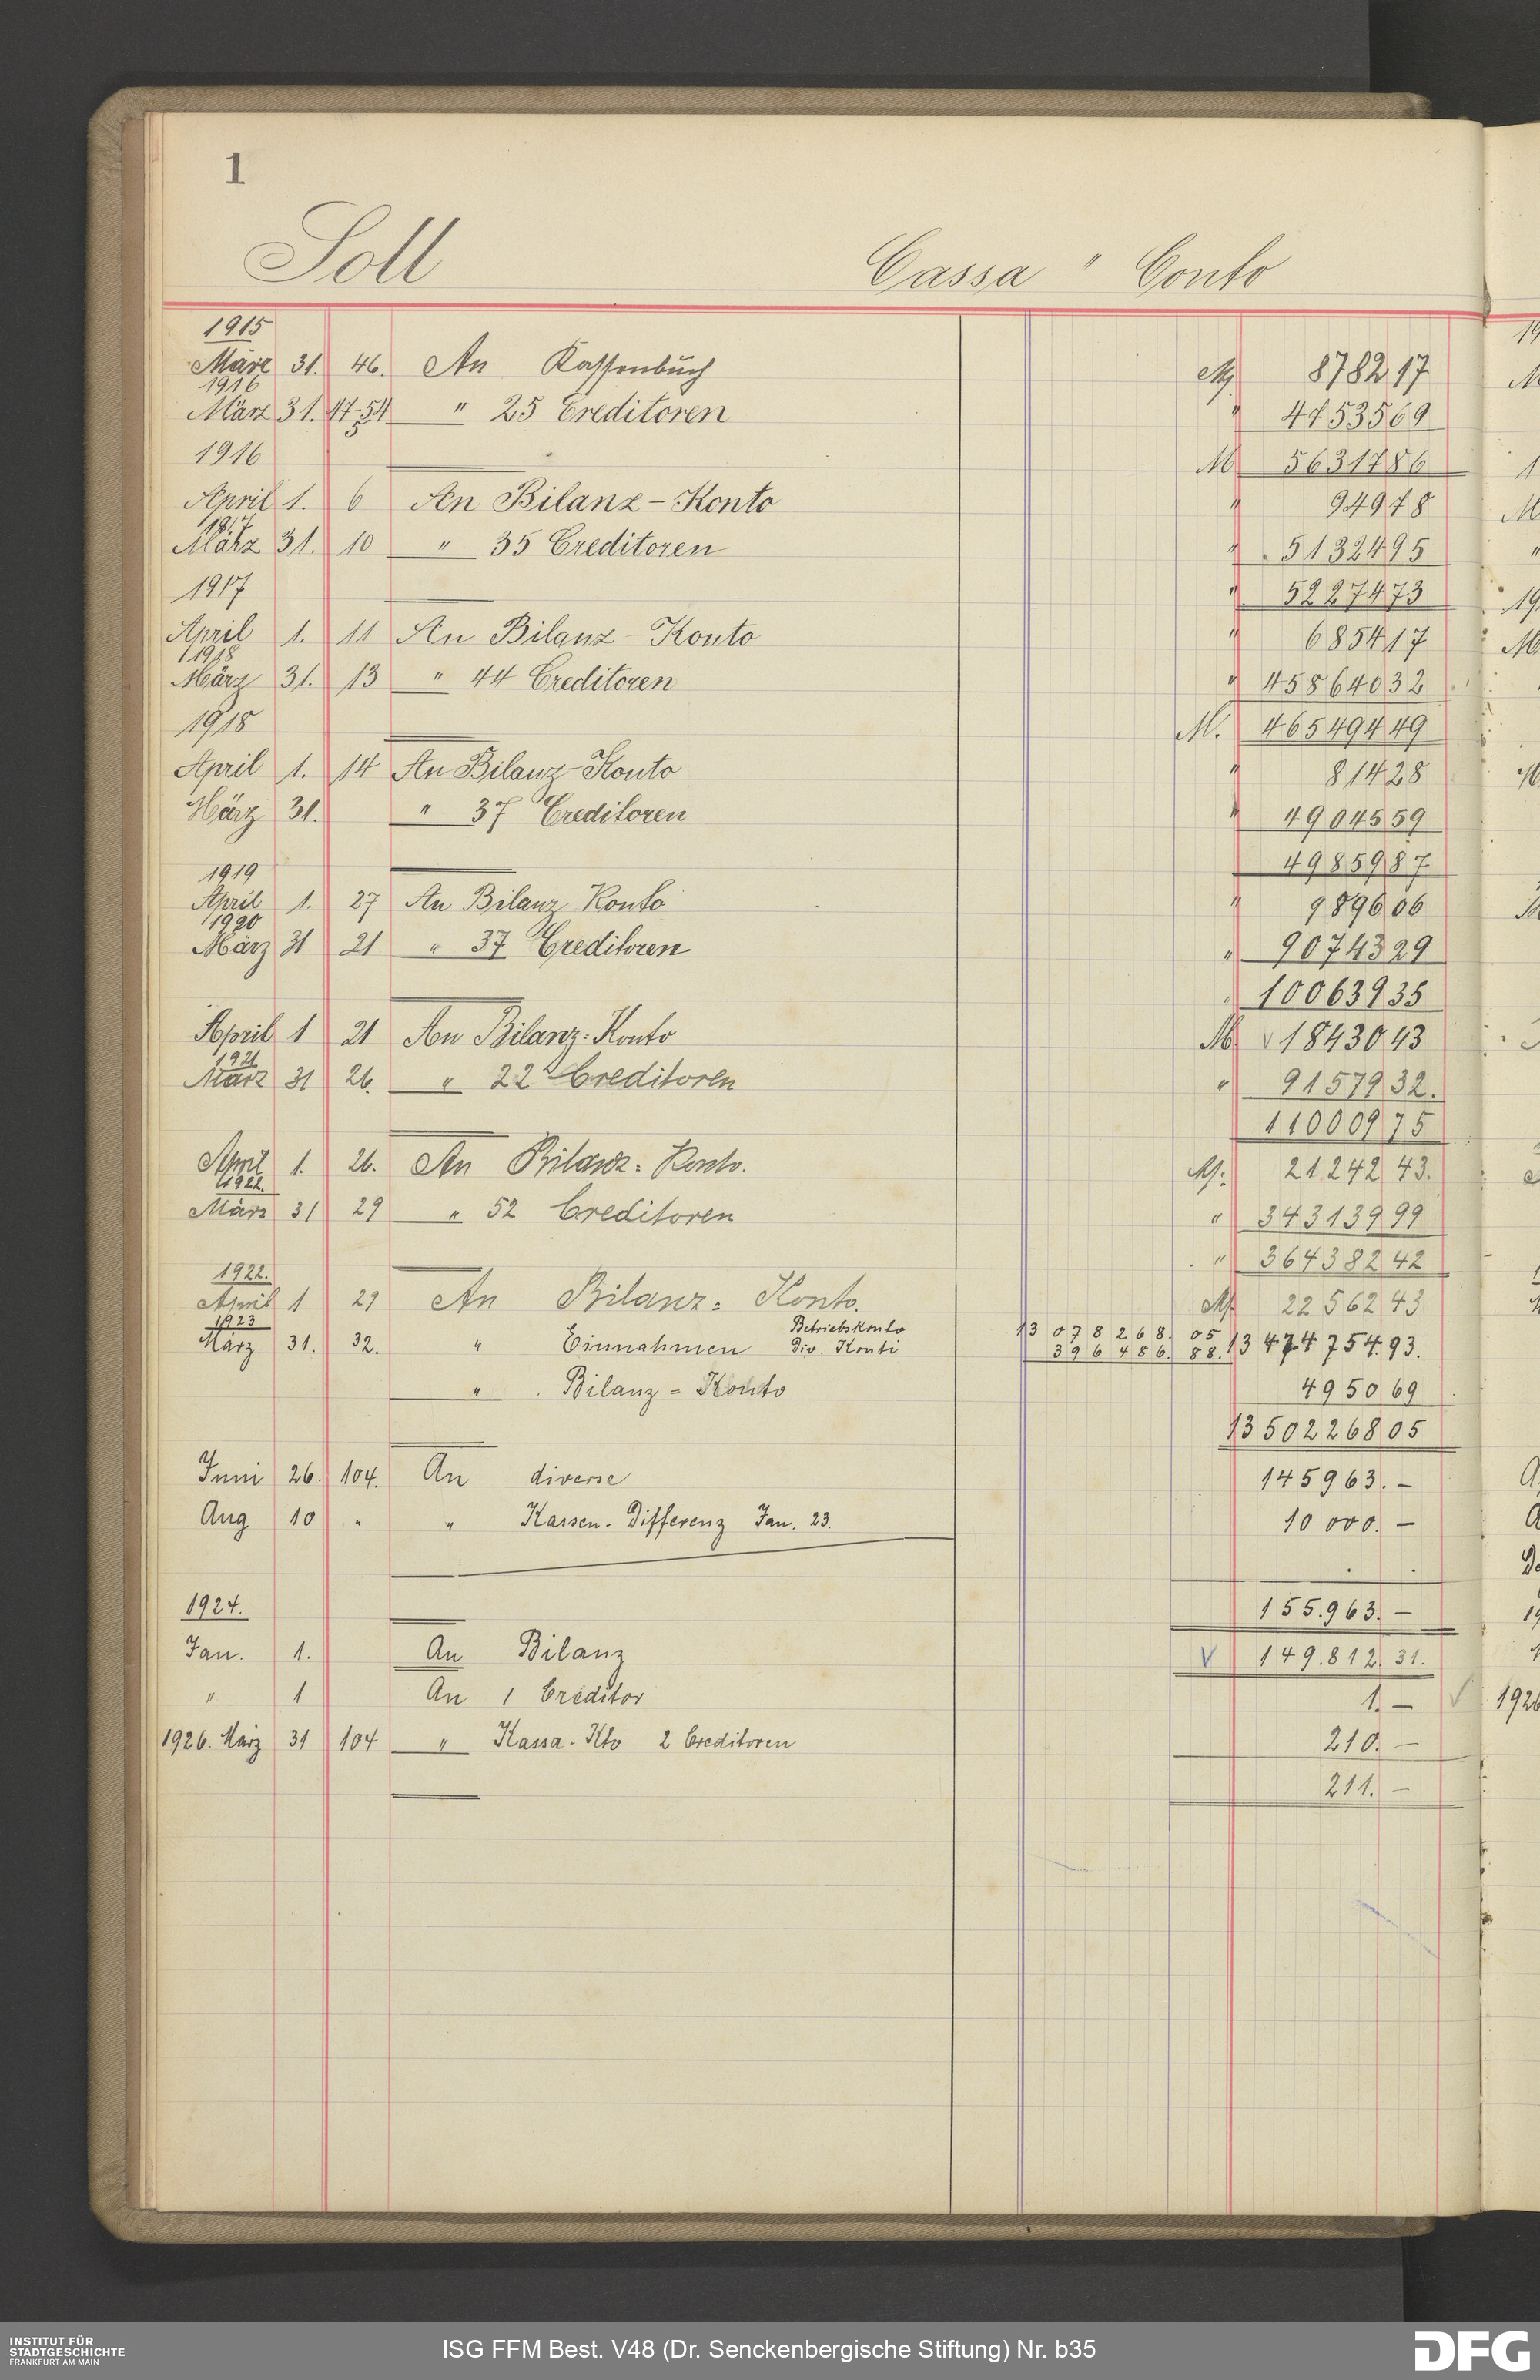 1
Soll Cassa " Conto
1915
März 31. 46. An Kassenbuch M 8782 17
1916
März 31. 47-54 " 25 Creditoren " 47535 69
1916 M 56317 86
April 1. 6 An Bilanz-Konto " 949 78
1917
März 31. 10 " 35 Creditoren " 51324 95
1917 " 52274 73
April 1. 11 An Bilanz-Konto " 6854 17
1918
März 31. 13 " 44 Creditoren " 458640 32
1918 M. 465494 49
April 1. 14 An Bilanz-Konto " 814 28
März 31. " 37 Creditoren " 49045 59
49859 87
1919
April 1. 27 An Bilanz Konto " 9896 06
1920
März 31 21 " 37 Creditoren " 90743 29
" 100639 35
April 1 21 An Bilanz-Konto M 18430 43
1921
März 31 26. " 22 Creditoren " 91579 32.
110009 75
April 1. 26. An Bilanz-Konto. M. 21242 43.
1922.
März 31 29 " 52 Creditoren " 343139 99
" 364382 42
1922.
April 1 29 An Bilanz-Konto. M 22562 43
1923 Betriebskonto 13 078 268. 05
März 31. 32. " Einnahmen Div. Konti 396 486. 88. 13 474 754. 93.
" Bilanz-Konto 4950 69
13502268 05
Juni 26. 104. An diverse 145963. -
Aug 10 " " Kassen-Differenz Jan. 23. 10 000. -
1924. 155.963. -
Jan. 1. An Bilanz V 149.812. 31.
" 1 An 1 Creditor 1. -
1926. März 31 104 " Kassa-Kto 2 Creditoren 210. -
211. -
1926
INSTITUT FÜR
STADTGESCHICHTE
FRANKFURT AM MAIN
ISG FFM Best. V48 (Dr. Senckenbergische Stiftung) Nr. b35
DFG